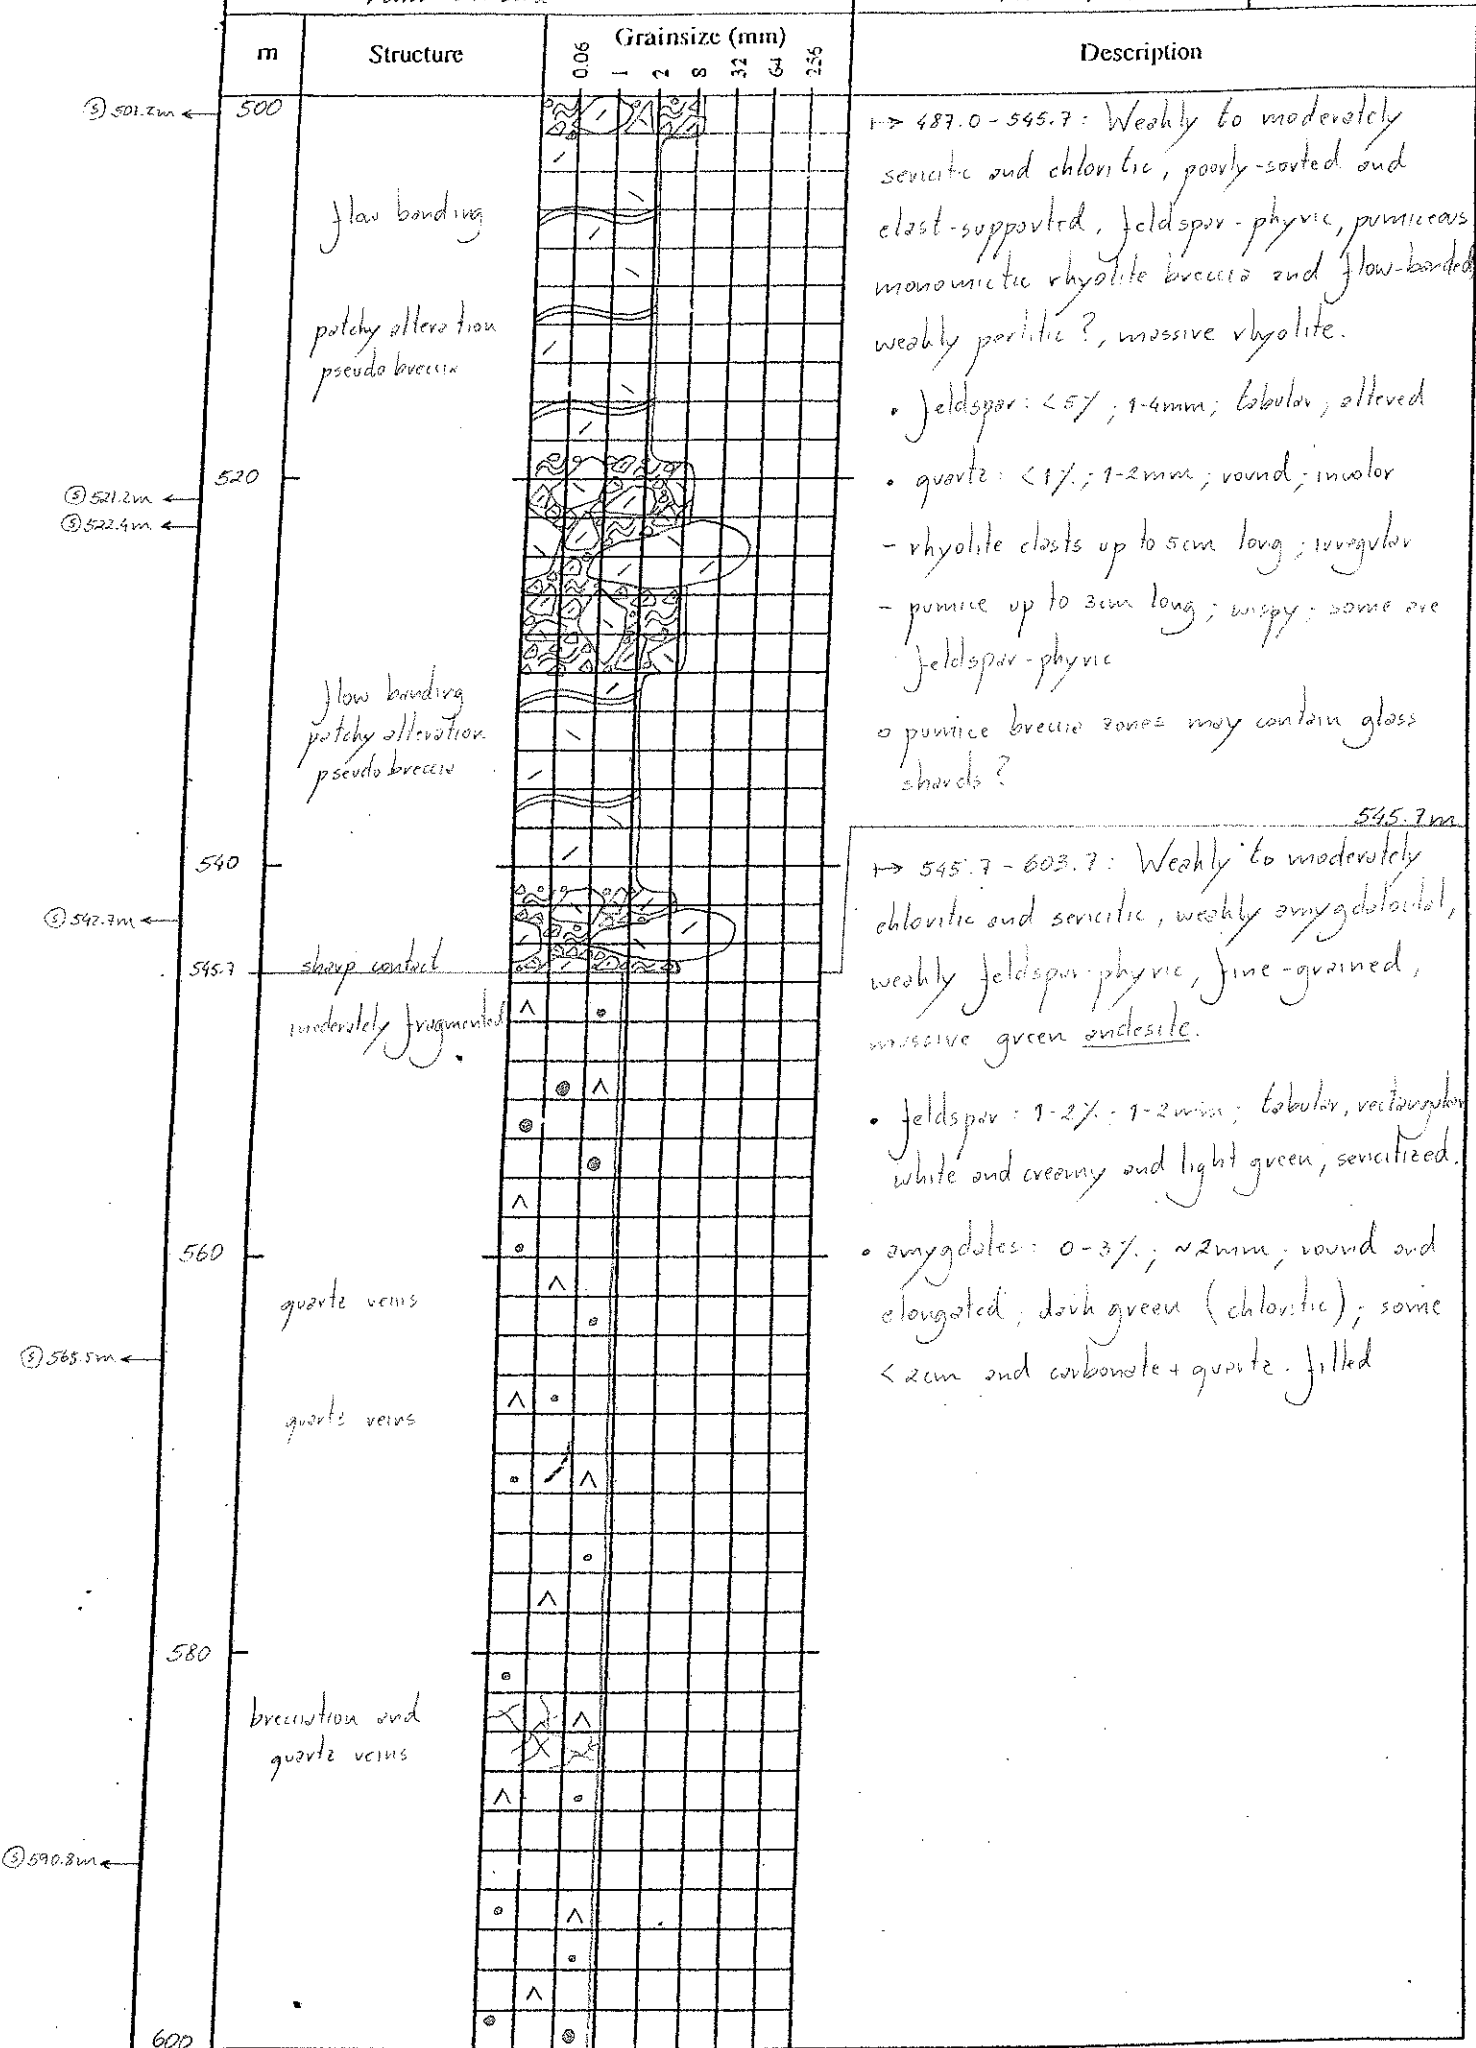 m
Structure
Grainsize (mm)
0.06
1
2
8
32
64
256
Description
Ⓢ 501.2m ←
500
flow banding
patchy alteration
pseudo breccia
520
Ⓢ 521.2m ←
Ⓢ 522.4m ←
flow banding
patchy alteration
pseudo breccia
540
Ⓢ 542.7m ←
545.7
sharp contact
moderately fragmented
560
quartz veins
Ⓢ 565.5m ←
quartz veins
580
brecciation and
quartz veins
Ⓢ 590.8m ←
600
↦ 487.0 - 545.7 : Weakly to moderately
sericitic and chloritic, poorly-sorted and
clast-supported, feldspar-phyric, pumiceous
monomictic rhyolite breccia and flow-banded
weakly perlitic ?, massive rhyolite.
• feldspar : <5% ; 1-4mm ; tabular ; altered
• quartz : <1% ; 1-2mm ; round ; incolor
- rhyolite clasts up to 5cm long ; irregular
- pumice up to 3cm long ; wispy ; some are
feldspar-phyric
o pumice breccia zones may contain glass
shards ?
545.7m
↦ 545.7 - 603.7 : Weakly to moderately
chloritic and sericitic, weakly amygdaloidal,
weakly feldspar-phyric, fine-grained,
massive green andesite.
• feldspar : 1-2% ; 1-2mm ; tabular, rectangular
white and creamy and light green ; sericitized.
• amygdales : 0-3% ; ~2mm ; round and
elongated ; dark green (chloritic) ; some
<2cm and carbonate + quartz - filled